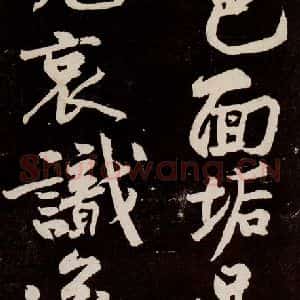 色面垢
哀識
Shufawang.CN